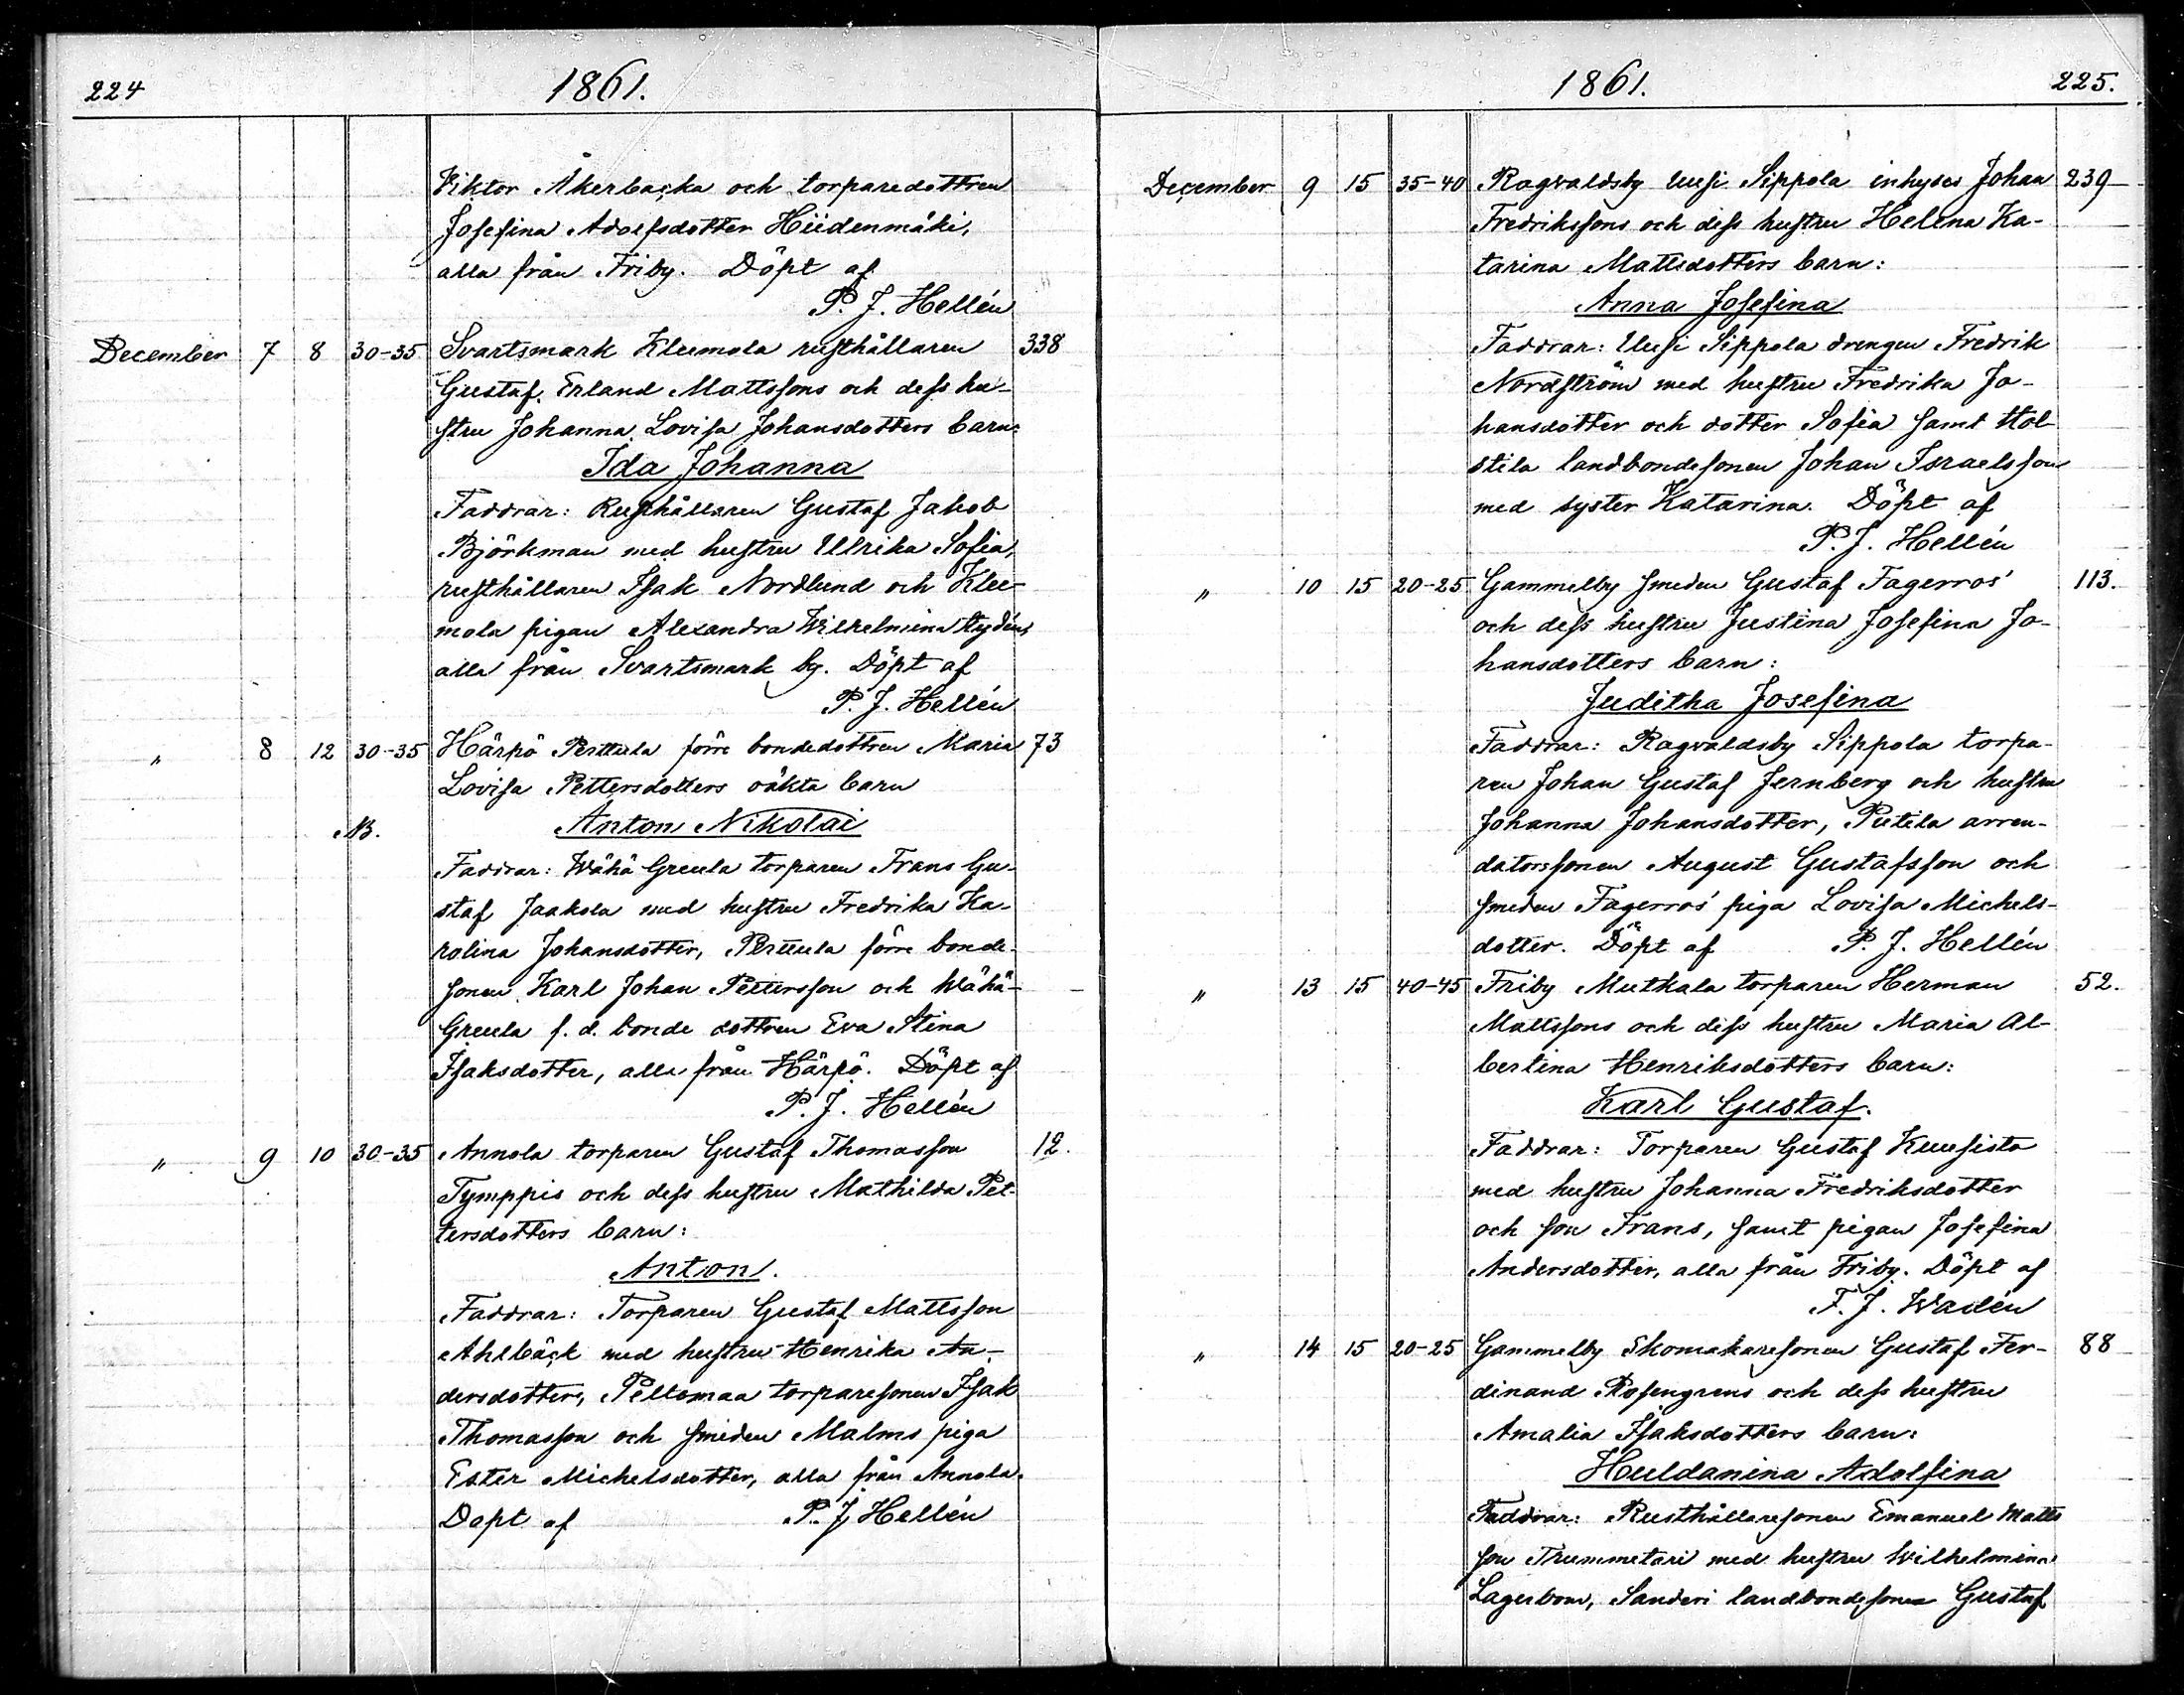 224
1861.
Viktor Åkerbacka och torparedottren
Josefina Adolfsdotter Hiidenmäki,
alla från Friby. Döpt af
P. J. Hellén
December 7 8 30-35 Svartsmark Kleemola rusthållaren 338
Gustaf Erland Mattssons och dess hu-
stru Johanna Lovisa Johansdotters barn:
Ida Johanna
Faddrar: Rusthållaren Gustaf Jakob
Björkman med hustru Ulrika Sofia,
rusthållaren Isak Nordlund och Klee-
mola pigan Alexandra Wilhelmina
alla från Svartsmark by. Döpt af
P. J. Hellén
" 8 12 30-35 Härpö Perttula förre bondedottren Maria 73
Lovisa Pettersdotters oäkta barn
NB. Anton Nikolai
Faddrar: Wähä Greula torparen Frans Gu-
staf Jaakola med hustru Fredrika Ka-
rolina Johansdotter, Perttula förre bonde-
sonen Karl Johan Pettersson och Wähä-
Greula f. d. bonde dottren Eva Stina
Isaksdotter, alla från Härpö. Döpt af
P. J. Hellén
" 9 10 30-35 Annola torparen Gustaf Thomasson 12.
Tymppis och dess hustru Mathilda Pet-
tersdotters barn:
Anton.
Faddrar: Torparen Gustaf Mattsson
Ahlbäck med hustru Henrika An-
dersdotter, Peltomaa torparesonen Isak
Thomasson och smeden Malms piga
Ester Michelsdotter, alla från Annola.
Döpt af P. J. Hellén
1861.
225.
December 9 15 35-40 Ragvaldsby Uusi Sippola inhyses Johan 239
Fredrikssons och dess hustru Helena Ka-
tarina Mattsdotters barn:
Anna Josefina
Faddrar: Uusi Sippola drengen Fredrik
Nordström med hustru Fredrika Jo-
hansdotter och dotter Sofia samt Hol-
stila landbondesonen Johan Israelsson
med syster Katarina. Döpt af
P. J. Hellén
" 10 15 20-25 Gammelby smeden Gustaf Fagerros' 113.
och dess hustru Justina Josefina Jo-
hansdotters barn:
Juditha Josefina
Faddrar: Ragvaldsby Sippola torpa-
ren Johan Gustaf Jernberg och hustru
Johanna Johansdotter, Putila arren-
datorssonen August Gustafsson och
smeden Fagerros' piga Lovisa Michels-
dotter. Döpt af P. J. Hellén
" 13 15 40-45 Friby Mutkala torparen Herman 52.
Mattssons och dess hustru Maria Al-
bertina Henriksdotters barn:
Karl Gustaf.
Faddrar: Torparen Gustaf Kuusisto
med hustru Johanna Fredriksdotter
och son Frans, samt pigan Josefina
Andersdotter, alla från Friby. Döpt af
F. J. Wadén
" 14 15 20-25 Gammelby Skomakaresonen Gustaf Fer- 88
dinand Rosengrens och dess hustru
Amalia Isaksdotters barn:
Huldanina Adolfina
Faddrar: Rusthållaresonen Emanuel Matts
son Trummetari med hustru Wilhelmina
Lagerbom, Sanderi landbondesonen Gustaf